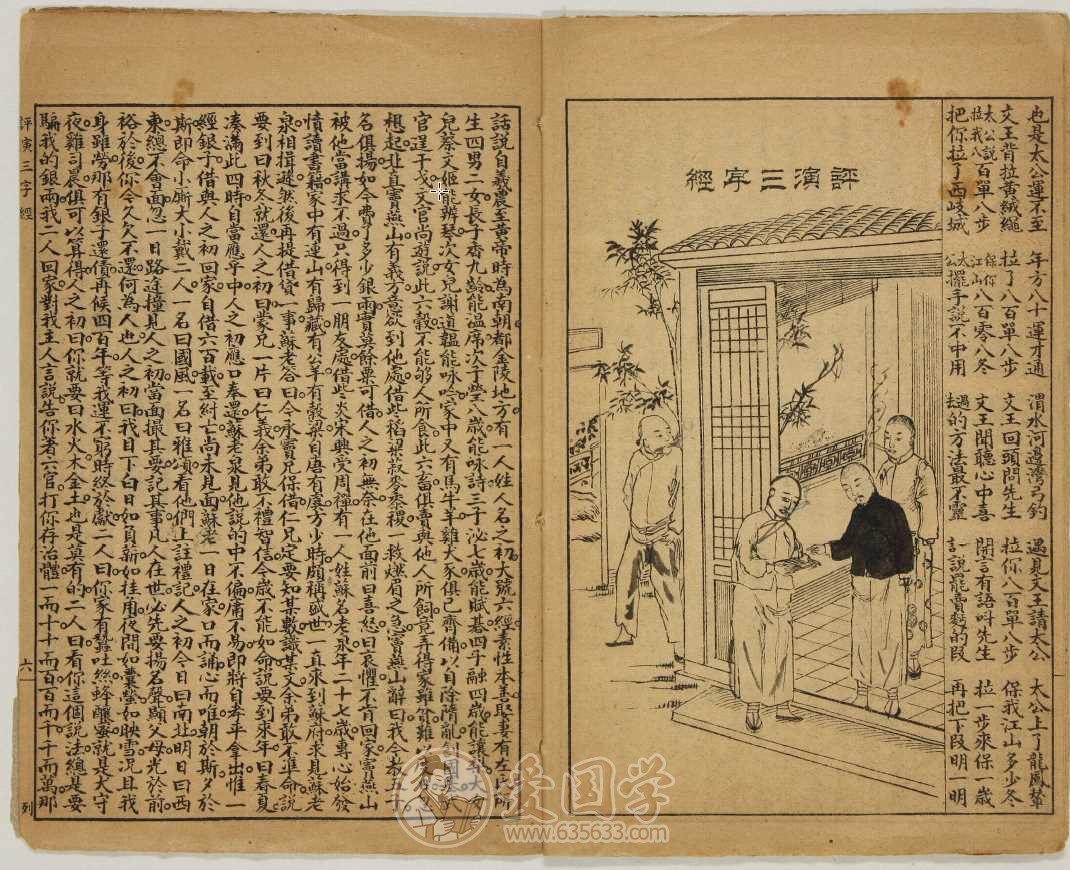 也是太公運不至 年方八十運才通 渭水河邊灣弓釣 遇見文王請太公 太公上了龍鳳輦
文王背拉黃絨繩 拉了八百單八步 文王回頭問先生 拉你八百單八步 保我江山多少冬
太公說拉我八百單八步 保你江山八百零八冬 文王聞聽心中喜 聞言有語叫先生 拉一步來保一歲
把你拉了西岐城 太公擺手說不中用 過去的方法最不靈 說罷賣 的段 再把下段明一明
評演三字經
話說自羲農至黃帝時為南朝都金陵地方有一人姓人名之初大號六經素性本善娶妻有左氏所
生四男二女長子香九齡能溫席次子瑩八歲能咏詩三子泌七歲能賦碁四子融四歲能讓梨大
兒蔡文姬能辨琴次女兒謝道韞能咏吟家中又有馬牛羊雞犬豕俱已齊備以自除隋亂
官逞干戈文官尚遊說此六穀不能够人所食此六畜俱賣與他人所飼竟弄得家雖貧難以
想起北直竇燕山有義方意欲到他處借些稻粱菽麥黍稷一救燃眉之急竇燕山辭曰我今教五子
名俱揚如今費了多少銀兩實莫餘粟可借人之初無奈在他面前曰喜怒曰哀懼不肯回家竇燕山
被他當講求不過只得到一朋友處借些炎宋興受周禪有一人姓蘇名老泉年二十七歲專心始發
憤讀書籍家中有連山有歸藏有公羊有穀梁自唐有虞方少時頗稱盛世一直來到蘇府求見蘇老
泉相揖遜然後再提借貸一事蘇老答曰今承竇兄保借仁兄定要知某數識某文余弟敢不準命說
要到曰秋冬就還人之初曰蒙兄一片曰仁義余弟敢不禮智信今歲不能如命說要到來年曰春夏
湊滿此四時自當應乎中人之初應口奉還蘇老泉見他說的中不偏庸不易即將自孝平拿出惟一
經銀子借與人之初回家自借六百載至紂亡尚未見面蘇老一日在家口而誦心而唯朝於斯夕於
斯即命小厮大小戴二人一名曰國風一名曰雅頌看他們上註禮記人之初今日曰南北明日曰西
東總不會面忽一日路途撞見人之初當面撮其要記其事凡人在世必先要揚名聲顯父母光於前
裕於後你今久欠不還何為人也人之初曰我目下白日如負薪如挂角夜間如囊螢如映雪况且我
身雖勞那有銀子還債再候四百年等我運不窮時終於獻二人曰你家有蠶吐絲蜂釀蜜就是犬守
夜雞司晨俱可以算得人之初曰你就要曰水火木金土也是莫有的二人曰看你這個說法總是要
騙我的銀兩我二人回家對我主人言說告你著六官打你存治體一而十十而百百而千千而萬那
評演三字經
六
列
爱国学
www.635633.com